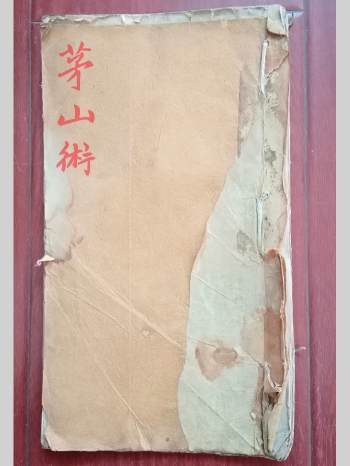 茅山術